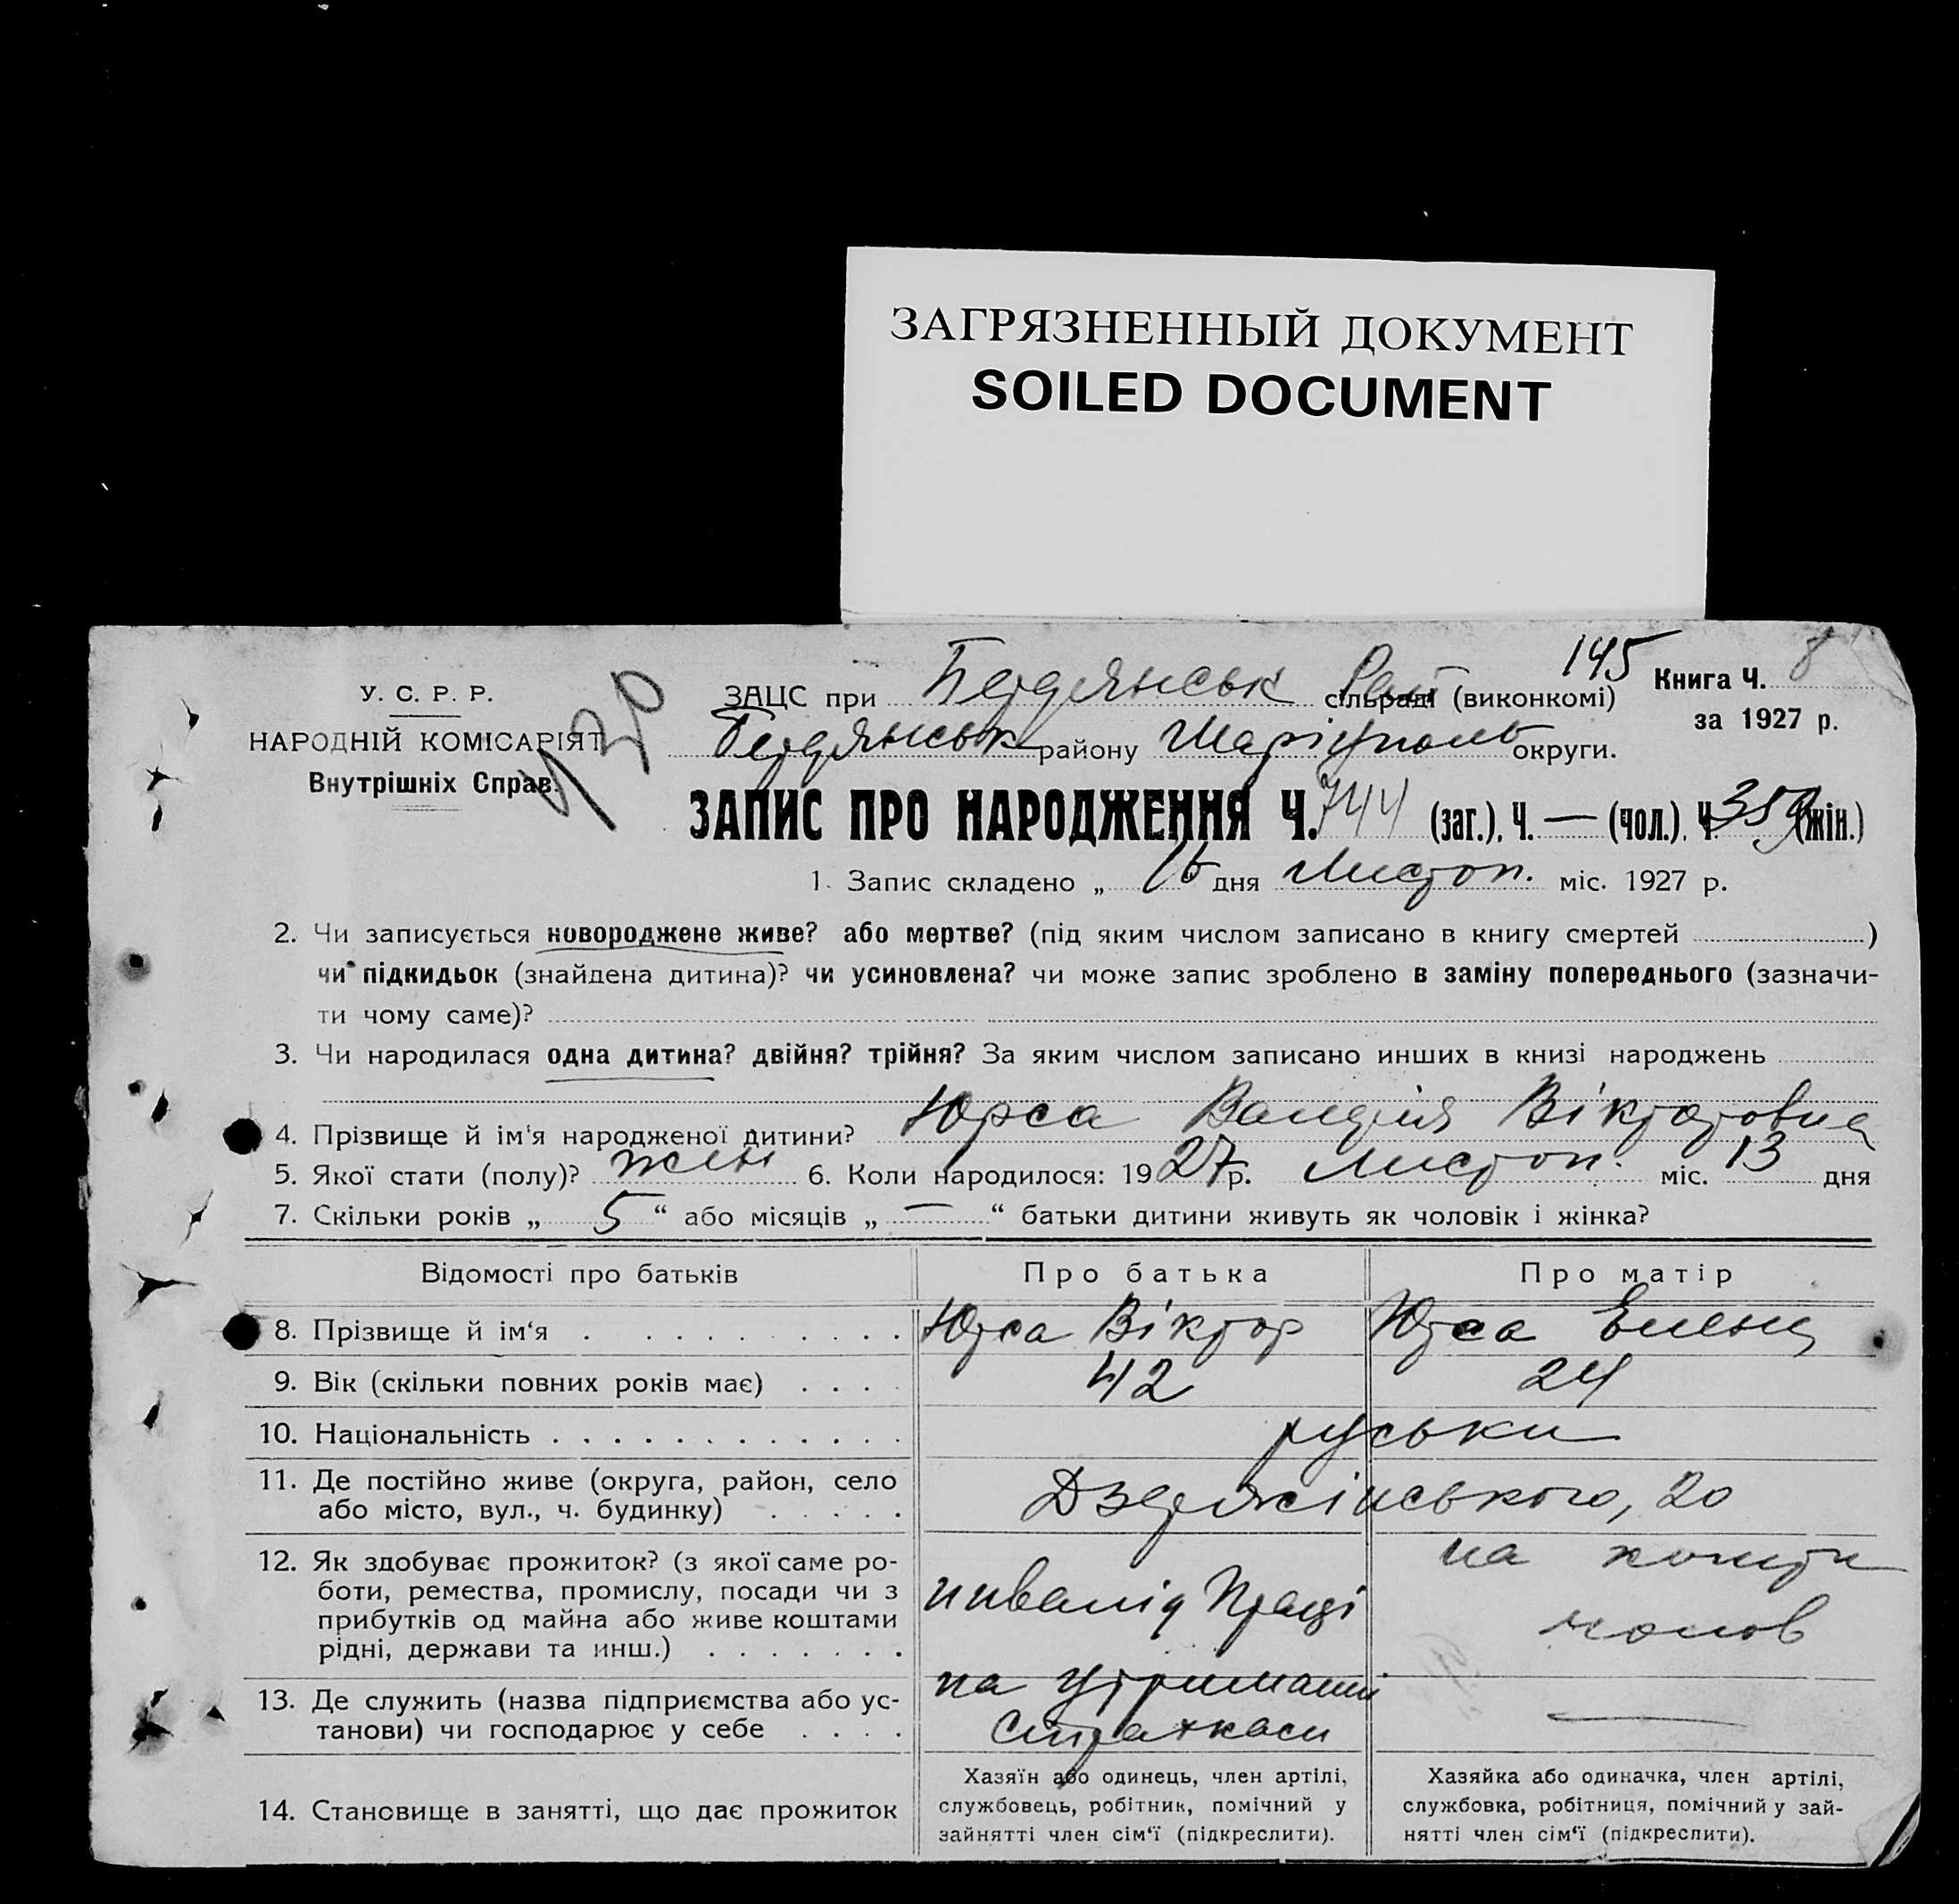 ЗАГРЯЗНЕННЫЙ ДОКУМЕНТ
SOILED DOCUMENT
145
У. С. Р. Р.
НАРОДНІЙ КОМІСАРІЯТ
Внутрішніх Справ.
420
ЗАЦС при Бердянськ Рай сільраді (виконкомі)
Книга Ч. 8
за 1927 р.
Бердянськ району Маріуполь округи.
ЗАПИС ПРО НАРОДЖЕННЯ Ч. 744 (заг.), Ч. — (чол.), Ч. 359 (жін.)
1. Запис складено „ 16 дня Листоп. міс. 1927 р.
2. Чи записується новороджене живе? або мертве? (під яким числом записано в книгу смертей )
чи підкидьок (знайдена дитина)? чи усиновлена? чи може запис зроблено в заміну попереднього (зазначи-
ти чому саме)?
3. Чи народилася одна дитина? двійня? трійня? За яким числом записано инших в книзі народжень
4. Прізвище й ім'я народженої дитини? Юрса Вікторовна
5. Якої стати (полу)? жін 6. Коли народилося: 1927 р. Листоп. міс. 13 дня
7. Скільки років „ 5 “ або місяців „ — “ батьки дитини живуть як чоловік і жінка?
Відомості про батьків Про батька Про матір
8. Прізвище й ім‘я . . . . . . . . . . Юрса Віктор Юрса Елена
9. Вік (скільки повних років має) . . . . 42 24
10. Національність . . . . . . . . . . . . . руськи
11. Де постійно живе (округа, район, село
або місто, вул., ч. будинку) . . . . . Дзержінського, 20
12. Як здобуває прожиток? (з якої саме ро-
боти, ремества, промислу, посади чи з
прибутків од майна або живе коштами
рідні, держави та инш.) . . . . . . .
инвалід Праці
на кошти
чолов
13. Де служить (назва підприємства або ус-
танови) чи господарює у себе . . . .
на утриманні
Страхкаси
—
14. Становище в занятті, що дає прожиток
Хазяїн або одинець, член артілі,
службовець, робітник, помічний у
зайнятті член сім‘ї (підкреслити).
Хазяйка або одиначка, член артілі,
службовка, робітниця, помічний у зай-
нятті член сім‘ї (підкреслити).